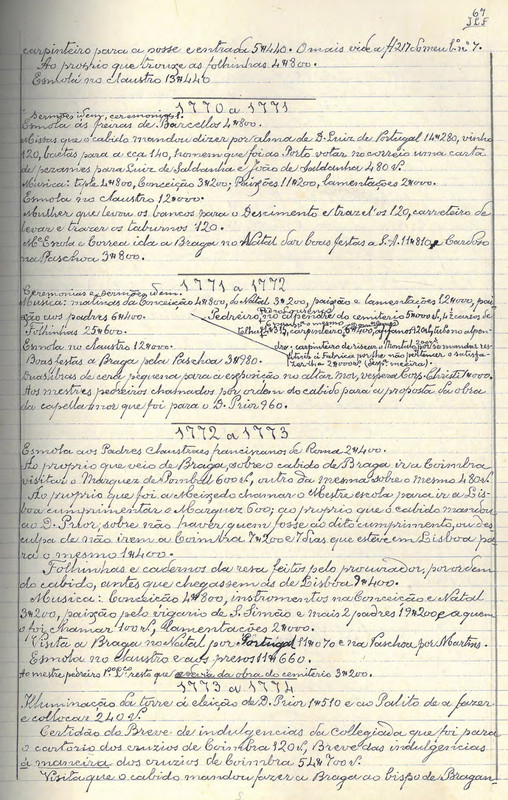 67
J.L.F
carpinteiro para a posse e entrada 5#440. O mais vide a fl 217 do meu l.º n.º 7.
Ao proprio que trouxe as folhinhas 4#800.
Esmola no claustro 13#440
1770 a 1771
Sermões idem, ceremonias 1.
Esmola ás freiras de Barcellos 4#800.
Missas que o cabido mandou dizer por alma de D. Luiz de Portugal 14#280, vinho
120, baetas para a eça 140, homem que foi ao Porto votar no correio uma carta
de pezames para Luiz de Saldanha e João de Saldanha 480 rs.
Musica: tiple 4#800, Conceição 3#200; Paixões 11#200, lamentações 2#000.
Esmola no claustro 12#000.
Mulher que levou os bancos para o Descimento e trazel'os 120, carreteiro de
levar e trazer os taburnos 120.
M.el Ennes e Correa ida a Braga no Natal dar boas festas a S.A. 11#810, e Cardoso
na Paschoa 3#800.
1771 a 1772
Ceremonias e sermões idem.
Musica: matinas da Conceição 4#800, do Natal 3#200, paixão e lamentações 12#000, pai-
xão aos padres 6#400.
Pedreiro, no alpendre do cemiterio 5#000 rs, 4 carros de
Folhinhas 25#600.
Esmola no claustro 12#000.
Boas festas a Braga pela Paschoa 3#980.
Duas libras de cera pequena para a exposição no altar mór, vespera Corp. Christi 1#000.
Aos mestres pedreiros chamados por ordem do cabido para a proposta da obra
da capella mor que foi para o D. Prior 960.
1772 a 1773
Esmola aos Padres claustraes franciscanos de Roma 2#400.
Ao proprio que veio de Braga, sobre o cabido de Braga ir a Coimbra
visitar o Marquez de Pombal 600 rs, outro da mesma sobre o mesmo 480 rs.
Ao proprio que foi a Meizedo chamar o Mestre escola para ir a Lis-
boa cumprimentar o Marquez 600; ao proprio que o cabido mandou
ao D. Prior, sobre não haver quem fosse ao dito cumprimento, ou des-
culpa de não irem a Coimbra 7#200 e 7 dias que esteve em Lisboa pa-
ra o mesmo 1#400.
Folhinhas e cadernos da resa feitos pelo procurador, por ordem
do cabido, antes que chegassem ás de Lisboa 9#400.
Musica: Conceição 4#800, instrumentos na Conceição e Natal
3#200, paixão pelo vigario de S. Simão e mais 2 padres 19#200 e a quem
o foi chamar 100 rs, lamentações 2#000.
Visita a Braga no Natal por Portugal 11#070 e na Paschoa por Martins.
Esmola no claustro e aos presos 11#660.
Ao mestre pedreiro resto que se devia da obra do cemiterio 3#200.
1773 a 1774
Illuminação da torre á eleição de D. Prior 1#510 e ao Palito de a fazer
e collocar 240 rs.
Certidão do Breve de indulgencias da collegiada que foi para
o cartorio dos cruzios de Coimbra 120 rs, Breve das indulgencias
á maneira dos cruzios de Coimbra 54#700 rs.
Visita que o cabido mandou fazer a Braga ao bispo de Bragan-